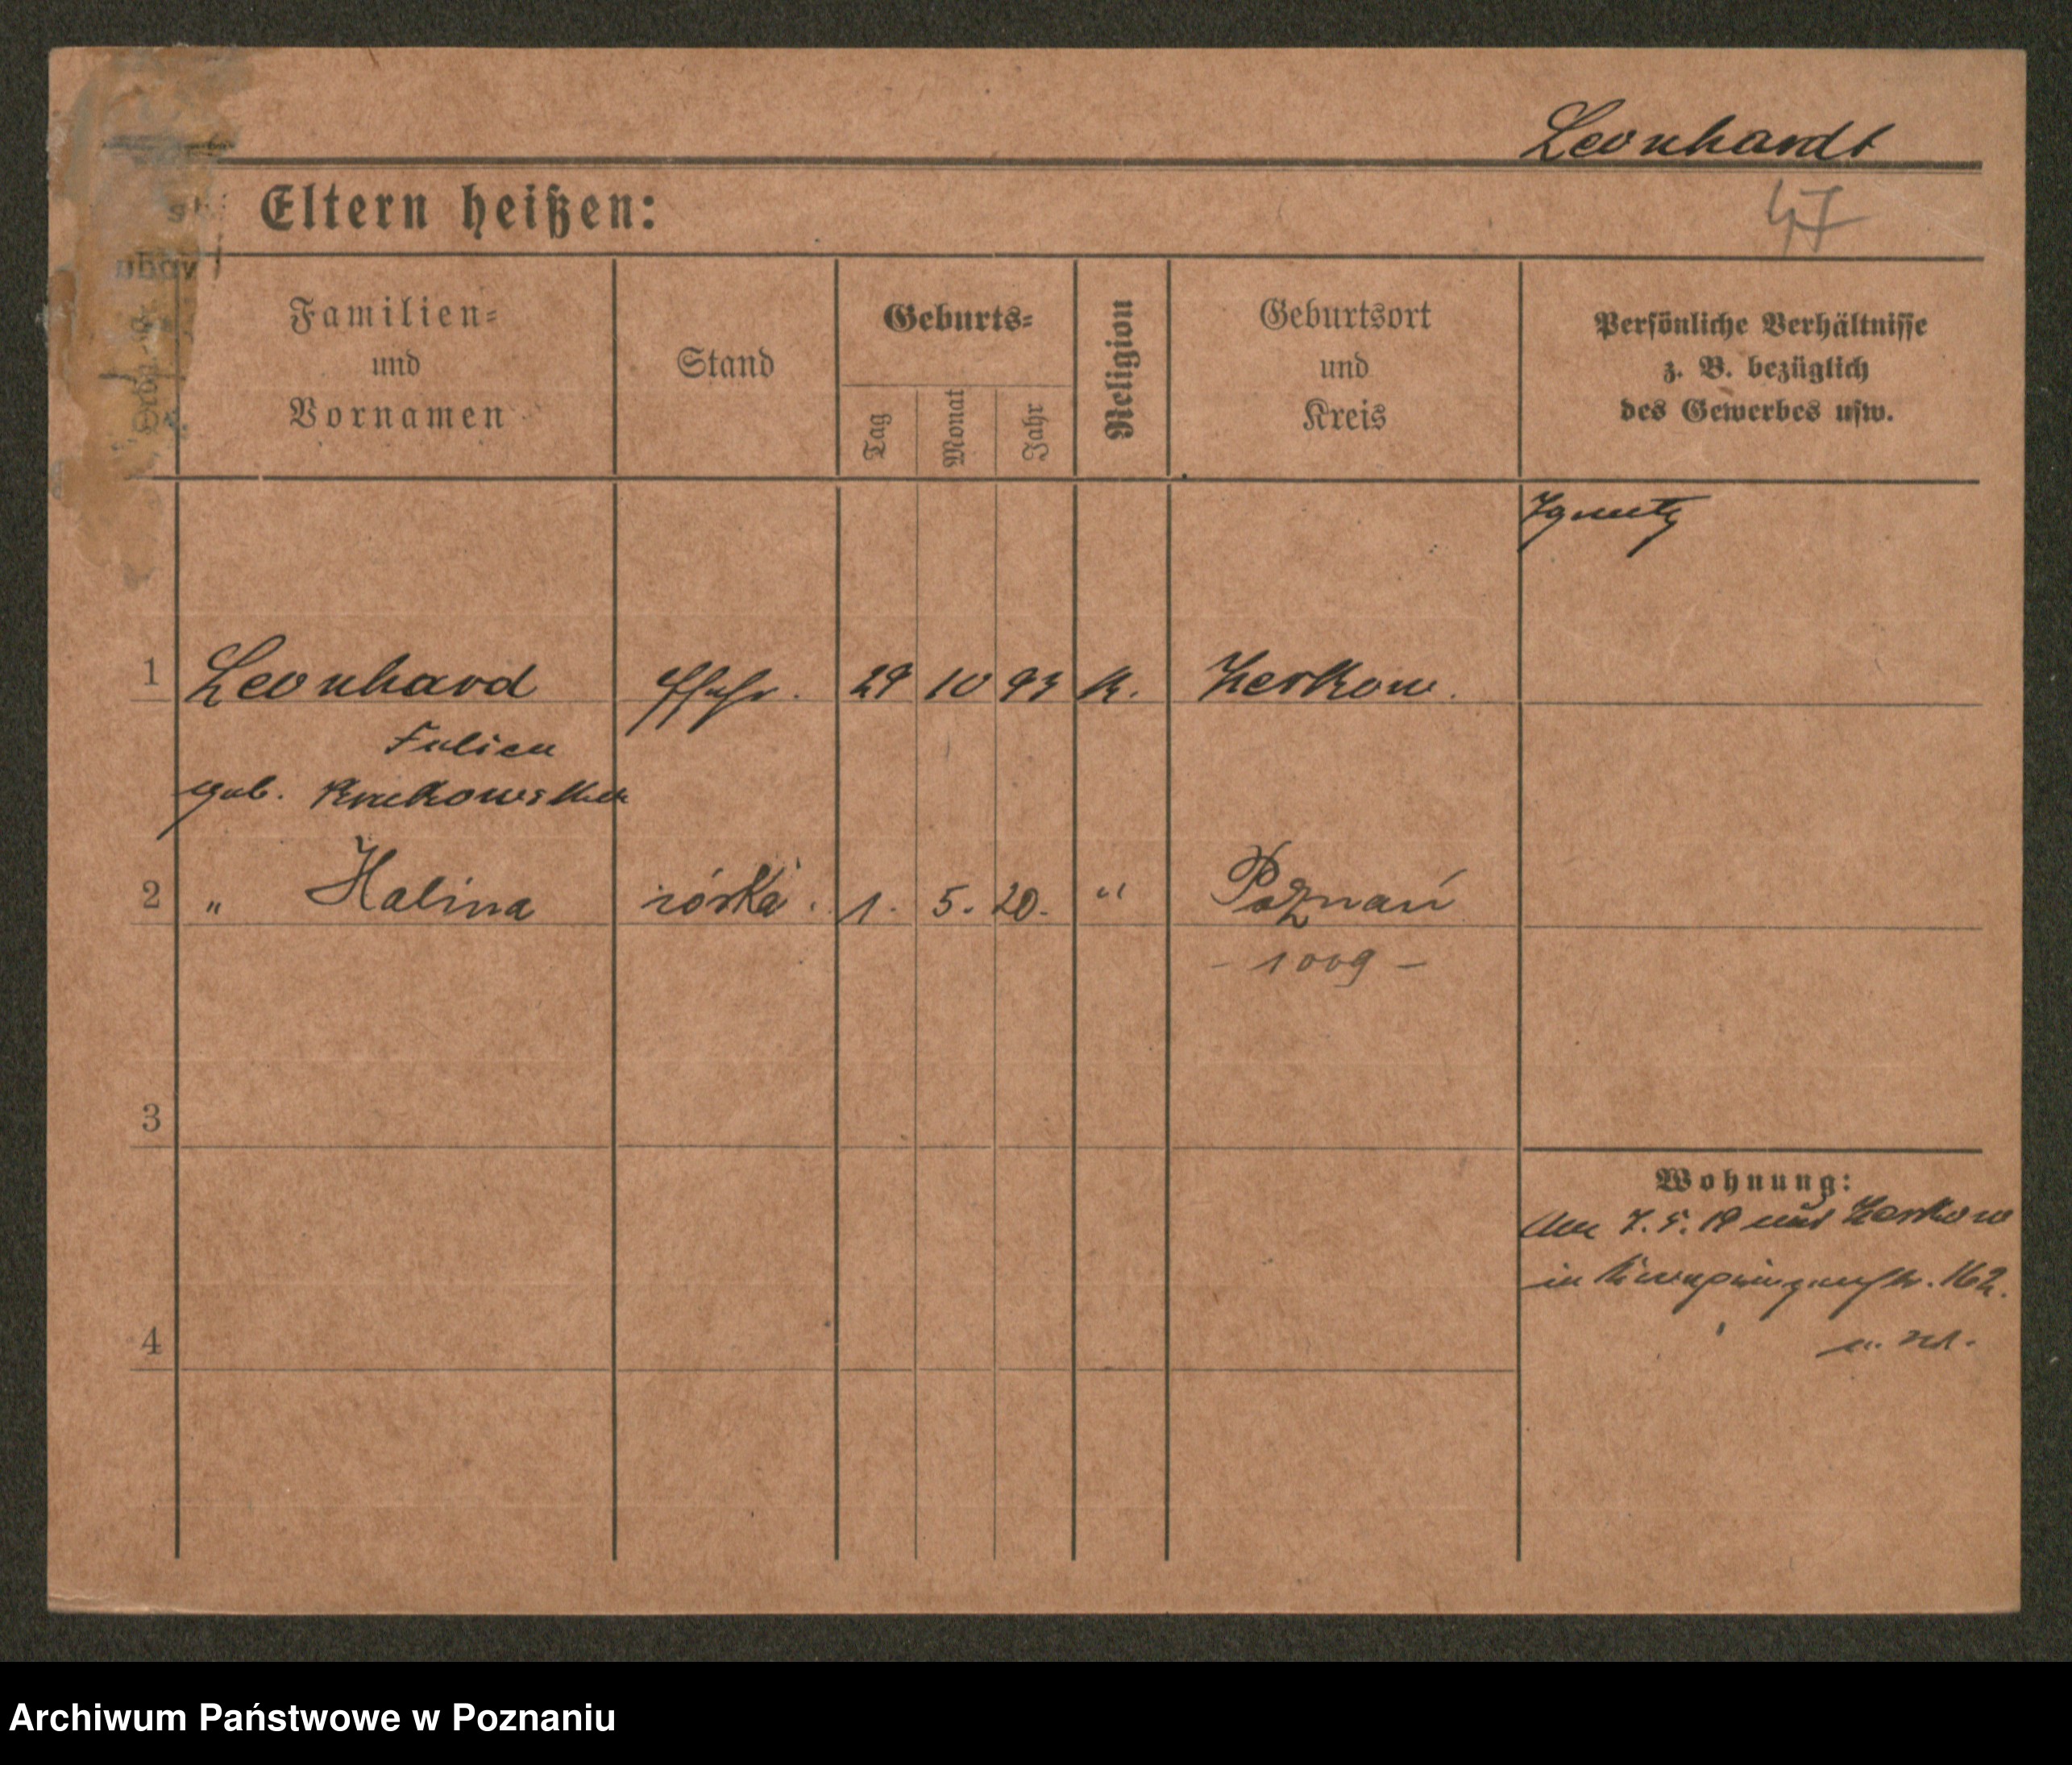 Leonhardt
Eltern heißen:
47
Familien=
und
Vornamen
Stand
Geburts=
Tag
Monat
Jahr
Religion
Geburtsort
und
Kreis
Persönliche Verhältnisse
z. B. bezüglich
des Gewerbes usw.
Ignatz
1 Leonhard 29 10 93 k. Zerkow.
geb.
2 " Halina córka. 1. 5. 20. " Poznań
- 1009 -
3
Wohnung:
7. 5. 19 aus Zerkow
in 162.
4
Archiwum Państwowe w Poznaniu